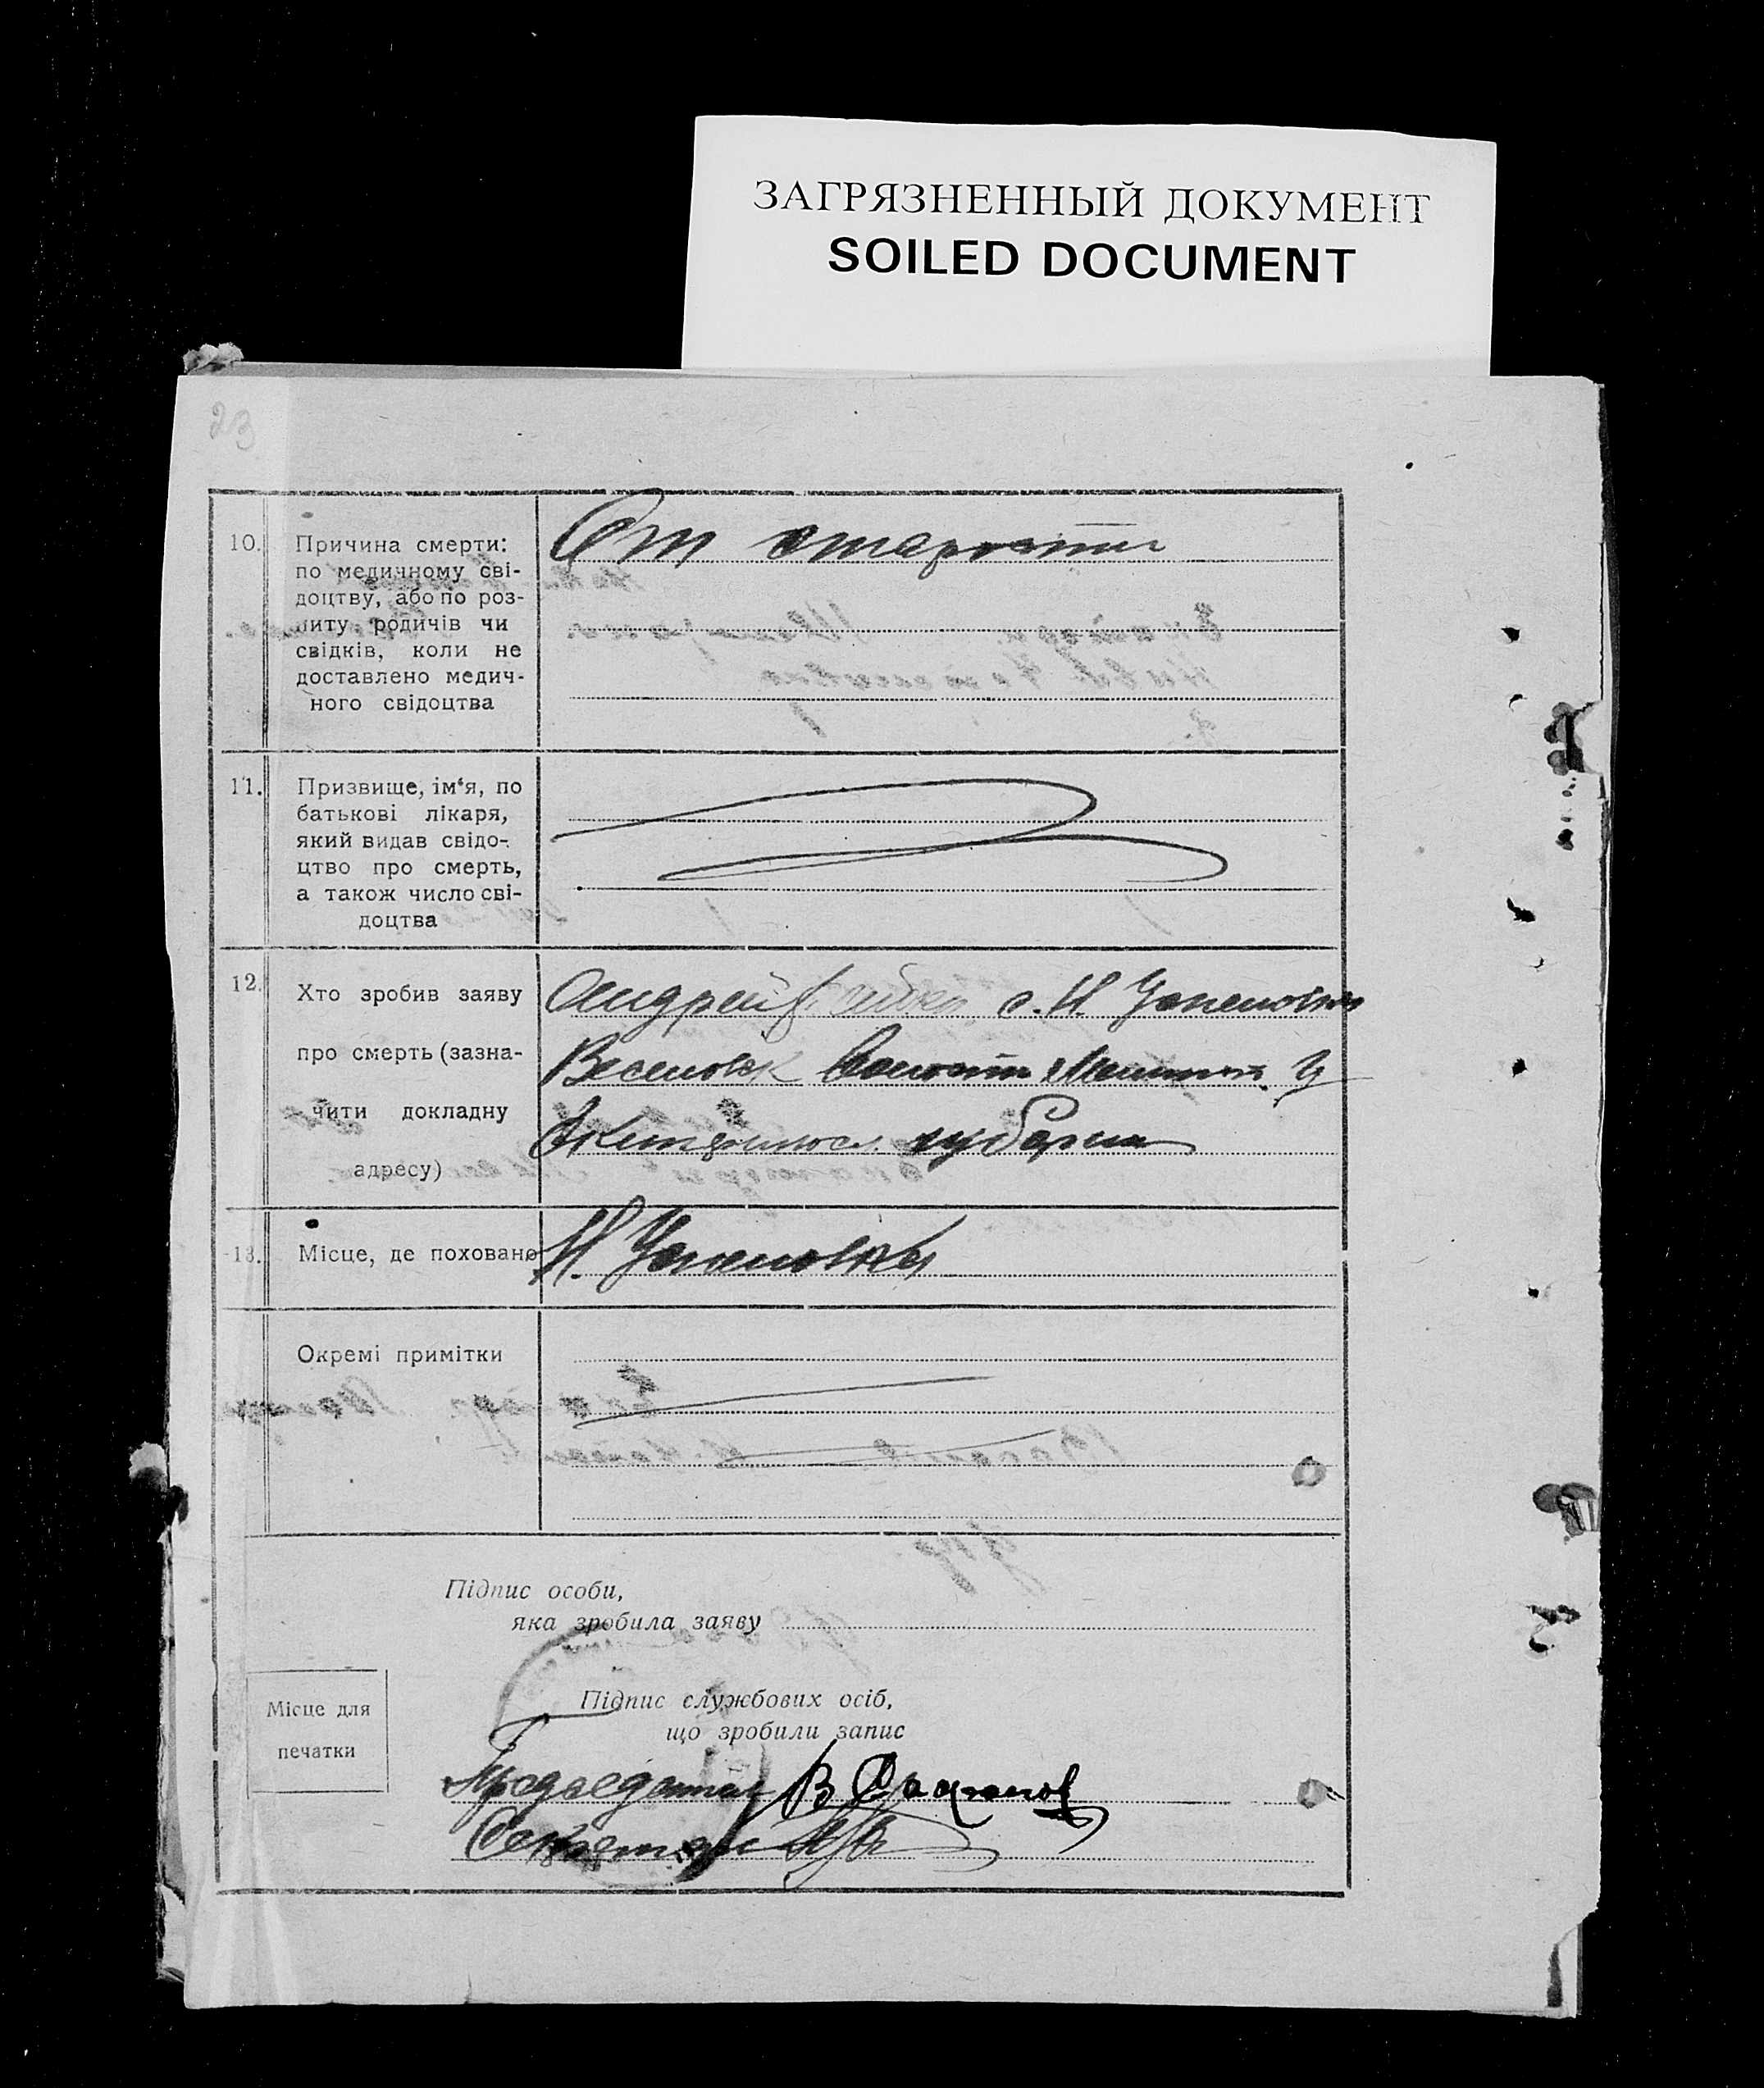 ЗАГРЯЗНЕННЫЙ ДОКУМЕНТ
SOILED DOCUMENT
23
10.
Причина смерти:
по медичному сві-
доцтву, або по роз-
питу родичів чи
свідків, коли не
доставлено медич-
ного свідоцтва
От старости
11.
Призвище, ім‘я, по
батькові лікаря,
який видав свідо-
цтво про смерть,
а також число сві-
доцтва
12.
Хто зробив заяву
про смерть (зазна-
чити докладну
адресу)
Андрей с. Н. Успеновки
Веселовск Волости
губернии
13.
Місце, де поховано
Н. Успеновка
Окремі примітки
Підпис особи,
яка зробила заяву
Місце для
печатки
Підпис службових осіб,
що зробили запис
Председатель В
Секретарь